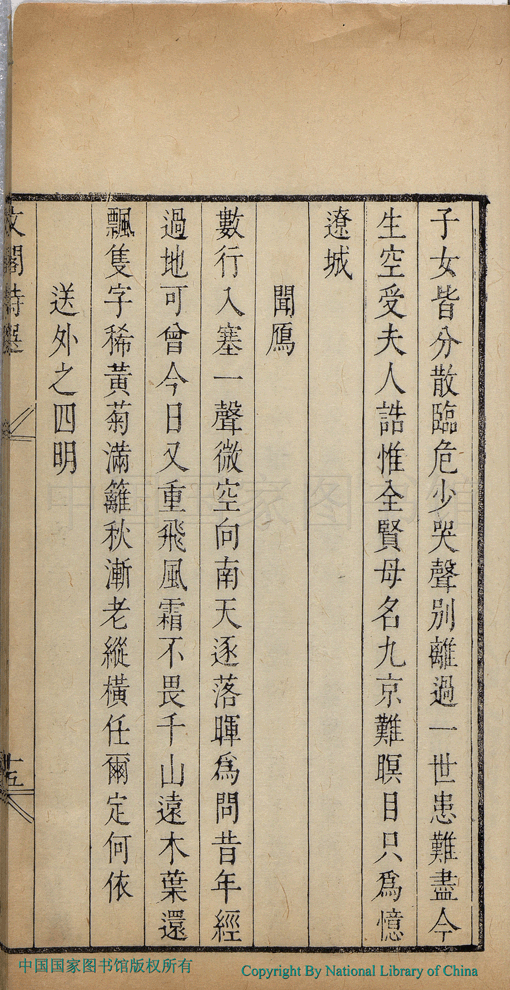 子女皆分散臨危少哭聲別離過一世患難盡今
生空受夫人誥惟全賢母名九京難瞑目只爲憶
遼城
聞鴈
數行入塞一聲微空向南天逐落暉爲問昔年經
過地可曾今日又重飛風霜不畏千山遠木葉還
飄隻字稀黃菊滿籬秋漸老縱橫任爾定何依
送外之四明
文閣詩選
十五
中国国家图书馆
中国国家图书馆版权所有
Copyright By National Library of China